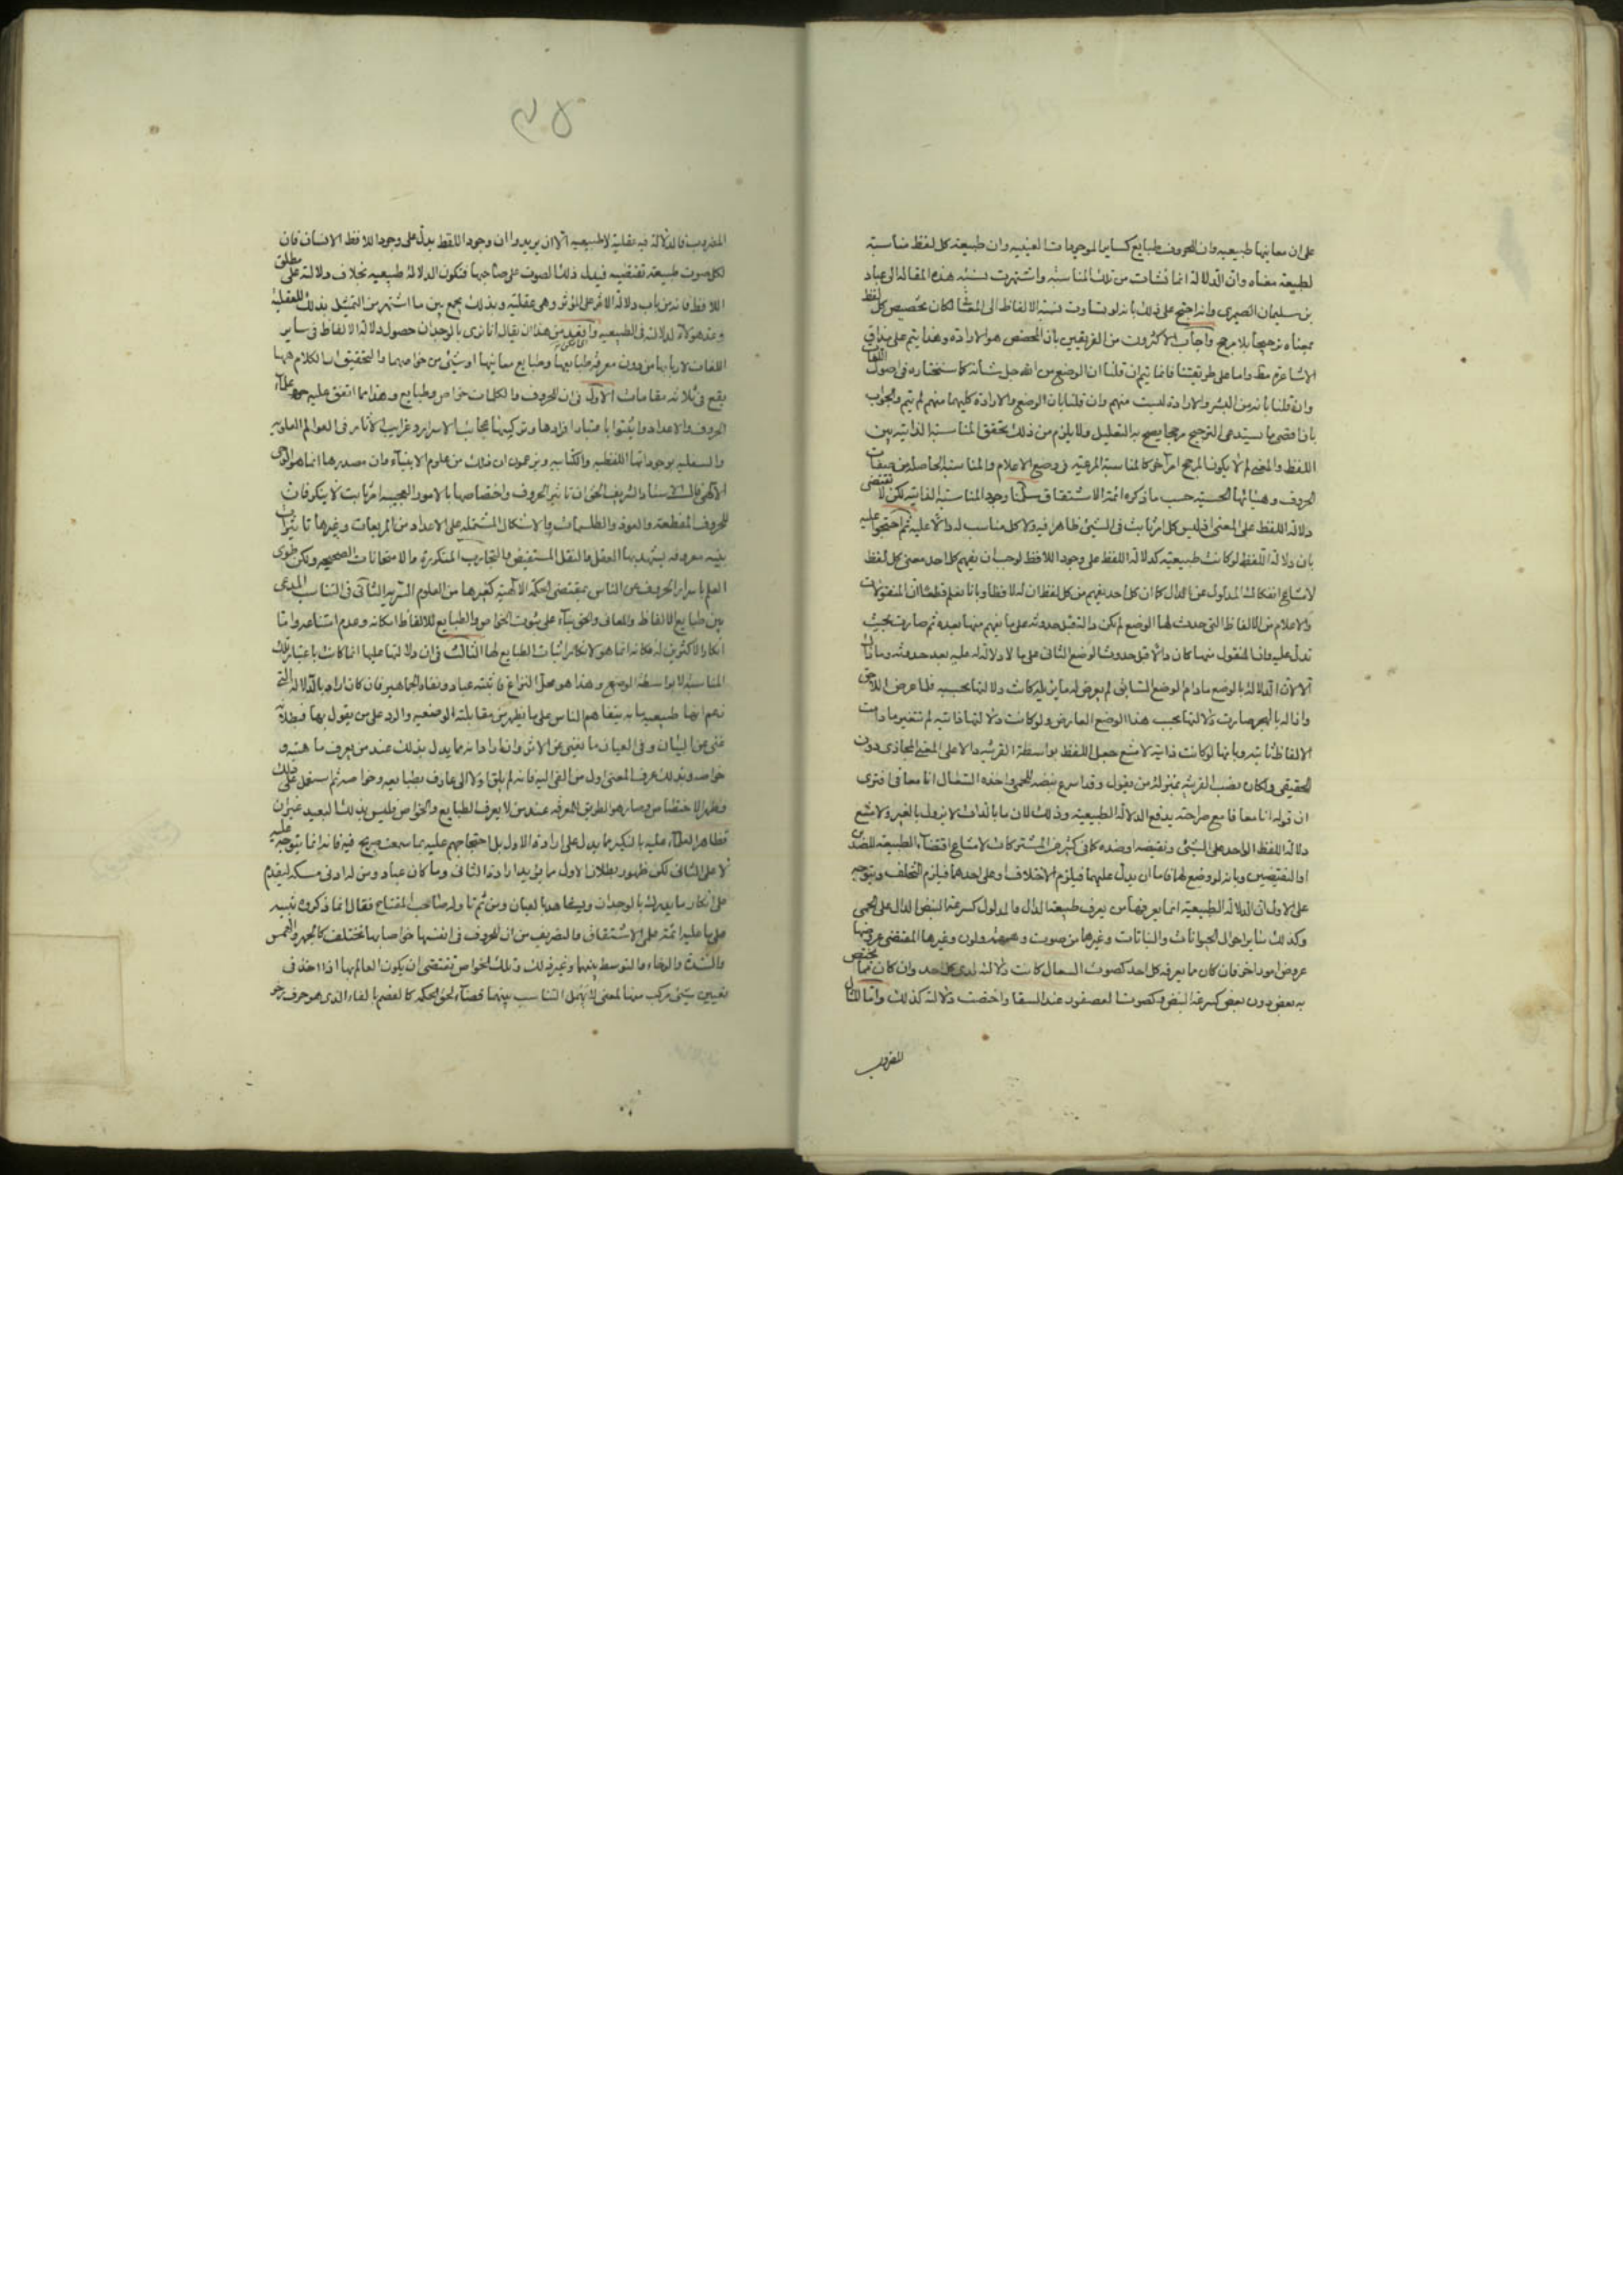 على ان معانيها طبيعيه وان للحروف طبايع كساير الموجودات العينيه وان طبيعة كل لفظ مناسبة
لطبيعة معناه وان الدلالة انما نشات من تلك المناسبة واشتهرت نسبة هذه المقالة الى عباد
بن سليمان الصيمرى وانه احتج على ذلك بانه لو تساوت نسبة الالفاظ الى المعنى لكان تخصيص كل لفظ
بمعناه ترجيحا بلا مرجح واجاب الاكثرون من الفريقين بان المخصص هو الارادة وهذا يتم على مذاق
الاشاعرة مط واما على طريقتنا فانما يتم ان قلنا ان الوضع من الله جل شانه كما سنختاره فى اصول اللغات
وان قلنا بانه من البشر والارادة ليست منهم وان قلنا بان الوضع والارادة كليهما منهم لم يتم والجواب
بان اقصى ما يستدعى الترجيح مرجحا يصح به التعليل ولا يلزم من ذلك تحقق المناسبة الذاتية بين
اللفظ والمعنى لم لا يكون المرجح امرا اخر كالمناسبة المرعية فى وضع الاعلام والمناسبة الحاصلة من صفات
الحروف وهيأتها الحسية حسب ما ذكره ائمة الاشتقاق سلمنا وجود المناسبة الذاتية لكن لا تقتضى
دلالة اللفظ على المعنى اذ ليس كل امر ثابت فى الشئ ظاهرا فيه ولا كل مناسب له دالا عليه ثم احتجوا عليه
بان دلالة اللفظ لو كانت طبيعية كدلالة اللفظ على وجود اللافظ لوجب ان يفهم كل احد معنى كل لفظ
لامتناع انفكاك المدلول عن الدال كما ان كل احد يفهم من كل لفظ ان له لافظا وبانا نعلم قطعا ان المنقولات
والاعلام من الالفاظ التى حدث لها الوضع لم تكن دالة قبل حدوثه على ما يفهم منها بعده ثم صارت بحيث
تدل عليه وان المنقول منها كان دالا قبل حدوث الوضع الثانى على ما لا دلالة له عليه بعد حدوثه وما ذاك
الا لان الدلالة بالوضع مادام الوضع السابق لم يعرض له ما يزيله كانت دلالتها بحسبه فلما عرض اللاحق
وازاله بالهجر صارت دلالتها بحسب هذا الوضع العارض ولو كانت دلالتها ذاتية لم تتغير ما دامت
الالفاظ ثابتة وبانها لو كانت ذاتية لامتنع جعل اللفظ بواسطة القرينة دالا على المعنى المجازى دون
الحقيقى ولكان نصب القرينة بمنزلة من يقول وقد اسرع نبضه للحمى واخذه السعال انا معافى فترى
ان قوله انا معافا مع صراحته يدفع الدلالة الطبيعية وذلك لان ما بالذات لا يزول بالغير ولامتنع
دلالة اللفظ الواحد على الشئ ونقيضه او ضده كما فى كثير من المشتركات لامتناع اقتضاء الطبيعة للضدين
او النقيضين وبانه لو وضع لهما فاما ان يدل عليهما فيلزم الاختلاف او على احدهما فيلزم التخلف ويتوجه
على الاول ان الدلالة الطبيعية انما يعرفها من يعرف طبيعة الدال والمدلول كسرعة النبض الدال على الحمى
وكذلك ساير احوال الحيوانات والنباتات وغيرها من صوت ولون وغيرها المقتضى عروضها
عروض امور اخر فان كان ما يعرفه كل احد كصوت السعال كانت دلالته لدى كل احد وان كان مما يختص
به بعض دون بعض كسرعة النبض وكصوت العصفور عند السفاد اختصت دلالته كذلك واما المثال
المضروب
المضروب فالدلالة فيه عقلية لا طبيعيه الا ان يريدوا ان وجود اللفظ يدل على وجود اللافظ الانسان فان
لكل صوت طبيعة تقتضيه فيدل ذلك الصوت على صاحبها فتكون الدلالة طبيعيه بخلاف دلالته على مطلق
اللافظ فانه من باب دلالة الاثر على المؤثر وهى عقلية وبذلك يجمع بين ما اشتهر من التمثيل بذلك للعقلية
وعد هؤلاء الدلالة فى الطبيعيه وابعد من هذا ان يقال انا نرى بالوجدان حصول دلالة الالفاظ فى ساير
اللغات لاربابها من دون معرفة طبايعها وطبايع معانيها او شئ من خواصهما والتحقيق ان الكلام ههنا
يقع فى ثلاثة مقامات الاول فى ان للحروف والكلمات خواص وطبايع وهذا مما اتفق عليه علماء
الحروف والاعداد واثبتوا باعتبار افرادها وتركيبها عجايب الاسرار وغرايب الآثار فى العوالم العلويه
والسفليه بوجوداتها اللفظيه والكتابيه ويزعمون ان ذلك من علوم الانبياء وان مصدرها انما هو الوحى
الالهى قال السيد الشريف الحق ان تاثير الحروف واختصاصها بالامور العجيبه امر ثابت لا ينكر فان
للحروف المقطعة والعوذ والطلسمات والاشكال المشتملة على الاعداد من المربعات وغيرها تاثيرات
بينه معروفه يشهد بها العقل والنقل المستفيض والتجارب المتكررة والامتحانات الصحيحه ولكن طوى
العلم باسرار الحروف عن الناس بمقتضى الحكمة الالهية كغيرها من العلوم السرية الثانى فى التناسب المدعى
بين طبايع الالفاظ والمعانى والحق بناء على ثبوت الخواص والطبايع للالفاظ امكانه وعدم امتناعه واما
انكار الاكثرين له فكانه انما هو لانكار اثبات الطبايع لها الثالث فى ان دلالتها عليها انما كانت باعتبار تلك
المناسبة لا بواسطة الوضع وهذا هو محل النزاع فاثبته عباد ونفاه الجماهير فان كان اراد بالدلالة التى
زعم انها طبيعيه ما به يتفاهم الناس على ما يظهر من مقابلته الوضعيه والرد على من يقول بها فبطلانه
غنى عن البيان وفى العيان ما يغنى عن الاثر وان اراد انه مما يدل بذلك عند من يعرف ماهيته و
خواصه وبذلك عرف المعنى اول من القى اليه فانه لم يلق اولا الا الى عارف بطبايعه وخواصه ثم استعمل على ذلك
وظهر الاختصاص وصار هو الطريق للمعرفه عند من لا يعرف الطبايع والخواص فليس بذلك البعيد غير ان
تظاهر العلماء عليه بالنكير مما يدل على ارادة الاول بل احتجاجهم عليه بما سمعت صريح فيه فانه انما يتوجه عليه
لا على الثانى لكن ظهور بطلان الاول مما يؤيد ارادة الثانى وما كان عباد ومن له ادنى مسكة ليقدم
على انكار ما يدرك بالوجدان ويشاهد بالعيان ومن ثم تاوله صاحب المفتاح فقال انما ذكروه تنبيه
على ما عليه ائمة على الاشتقاق والتصريف من ان للحروف فى انفسها خواصا بها تختلف كالجهر والهمس
والشدة والرخاء والتوسط بينهما وغير ذلك وتلك الخواص تقتضى ان يكون العالم بها اذا اخذ فى
تعيين شئ مركب منها لمعنى لا يهمل التناسب بينهما قضاء لحق الحكمة كالفصم بالفاء الذى هو حرف رخو